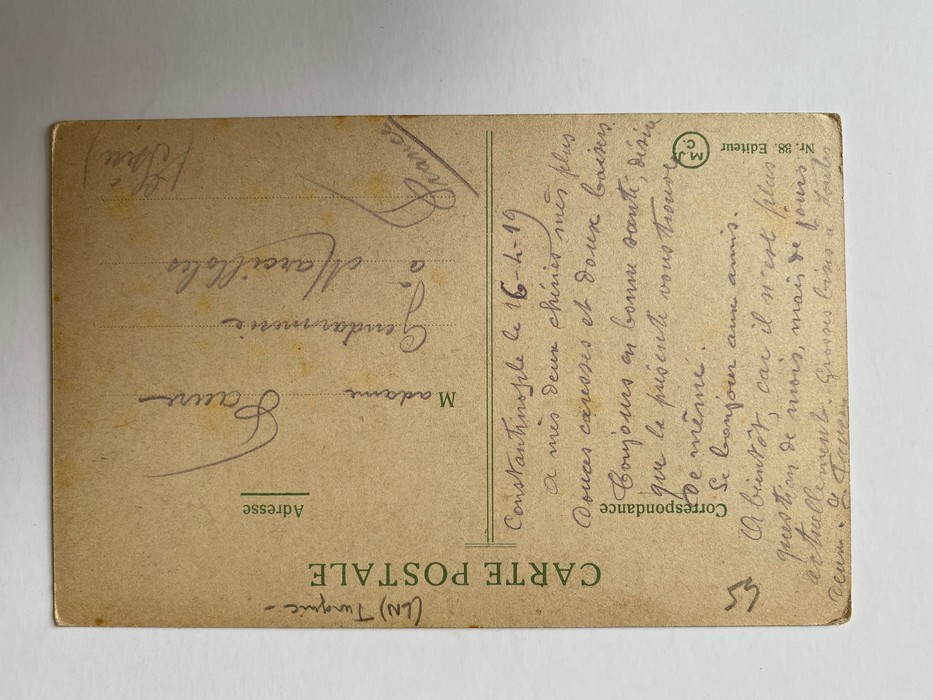 (EN) Turquie -
CARTE POSTALE
Correspondance
Adresse
Constantinople le 16-4-19
a mes deux chéries mes plus
Douces caresses et doux baisers
Toujours en bonne santé, désire
que la présente vous trouve
De même.
Le bonjour aux amis.
A bientôt, car il n'est plus
question de mois, mais de jours
actuellement. Grosses bises à toutes
deux.
Madame Faure
Gendarmerie
à Marcilloles
(Isère)
France
59
Nr. 88. Editeur
M.J.C.